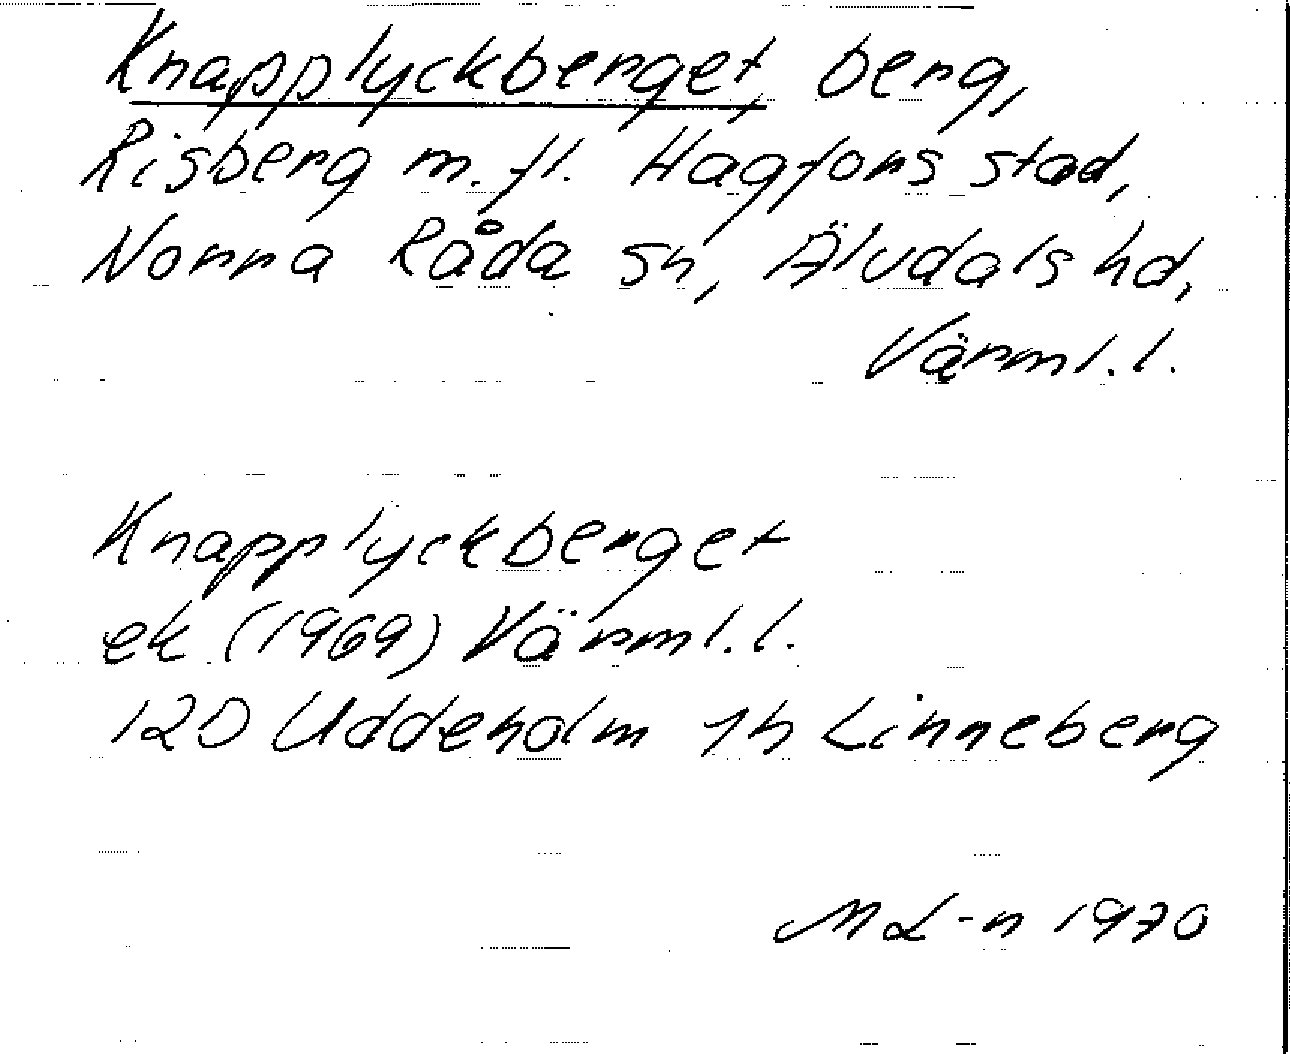 Knapplyckberget, berg,
Risberg m. fl. Hagfors stad,
Norra Råda sn, Älvdals hd,
Värml. l.
Knapplyckberget
ek (1969) Värml. l.
12D Uddeholm Linneberg
M L-n 1970